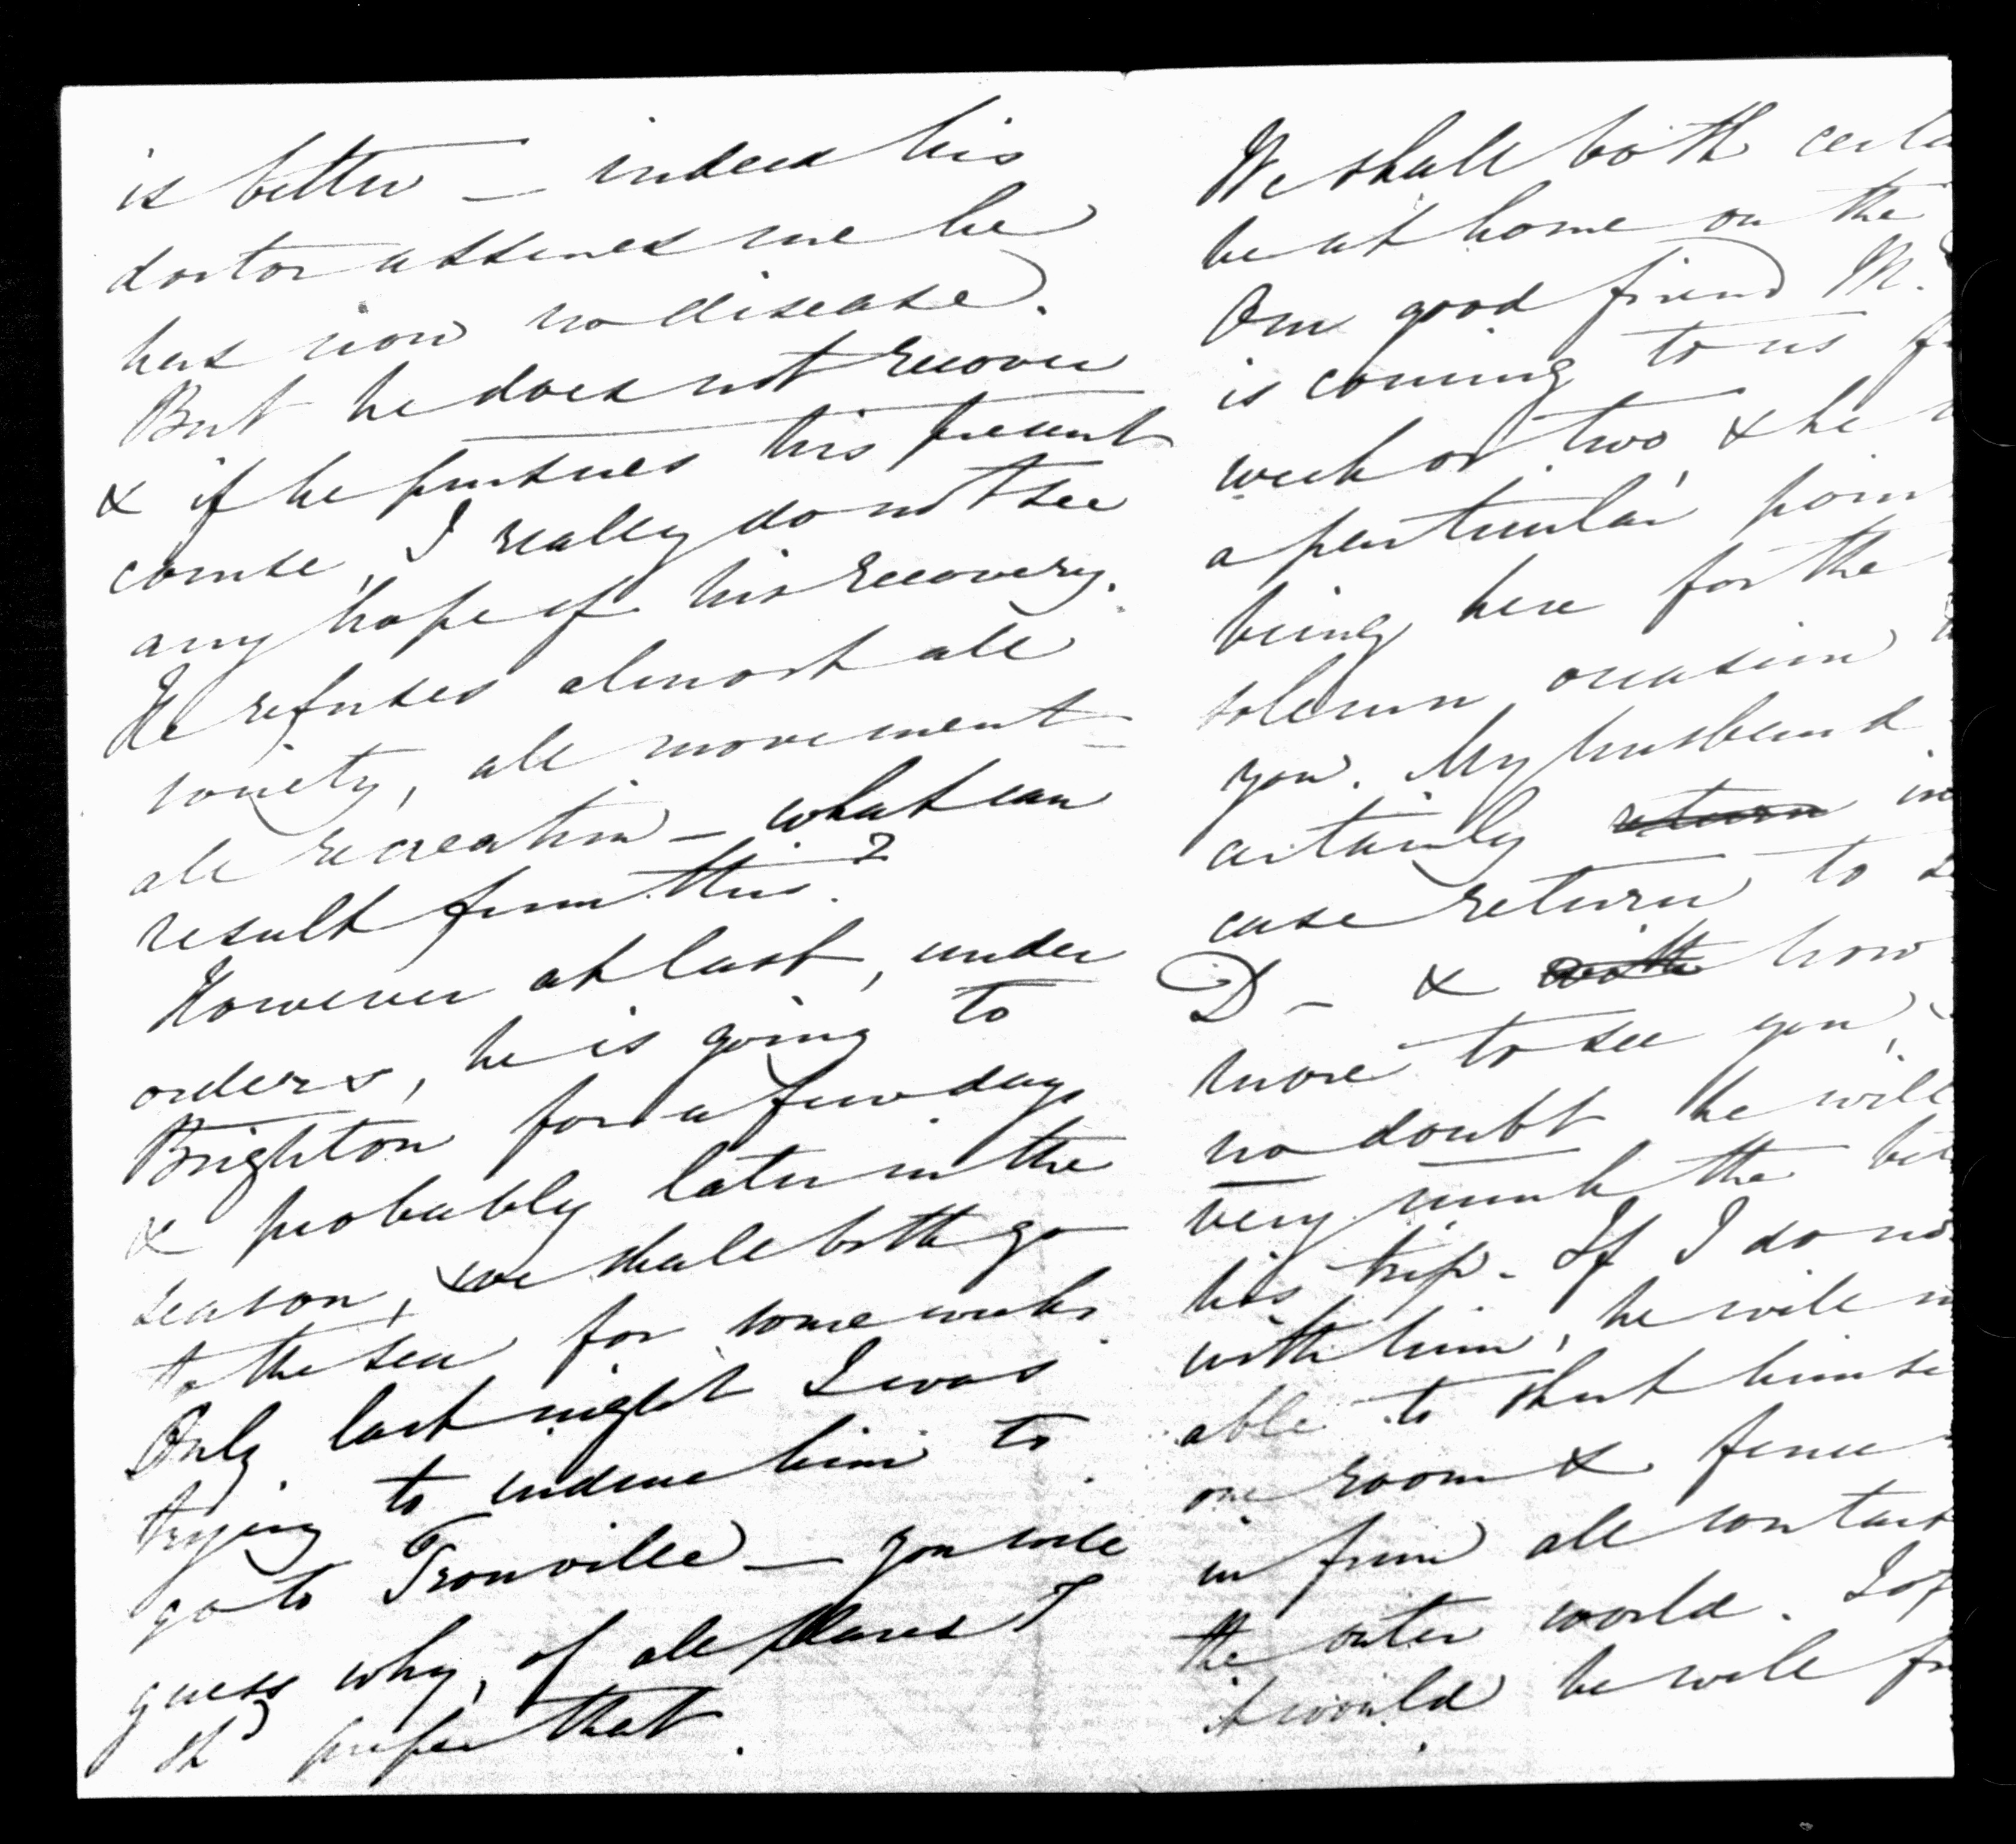 is better — indeed his
doctor assures me he
has now no disease.
But he does not recover
& if he pursues his present
course, I really do not see
any hope of his recovery.
He refuses almost all
society, all movement —
all recreation — what can
result from this?
However at last, under
orders, he is going to
Brighton for a few days
& probably later in the
season, we shall both go
to the sea for some weeks.
Only last night I was
trying to induce him to
go to Trouville — you will
guess why, of all places I
shd prefer that.
We shall both certa
be at home on the
Our good friend M.
is coming to us f
week or two & he
a particular poin
being here for the
solemn occasion
you. My husband
certainly return in
case return to s
D – & with how
more to see you,
no doubt he will
very much the bet
his trip. If I do no
with him, he will n
able to shut himse
one room & fence
in from all contact
the outer world. I
it would he will fr